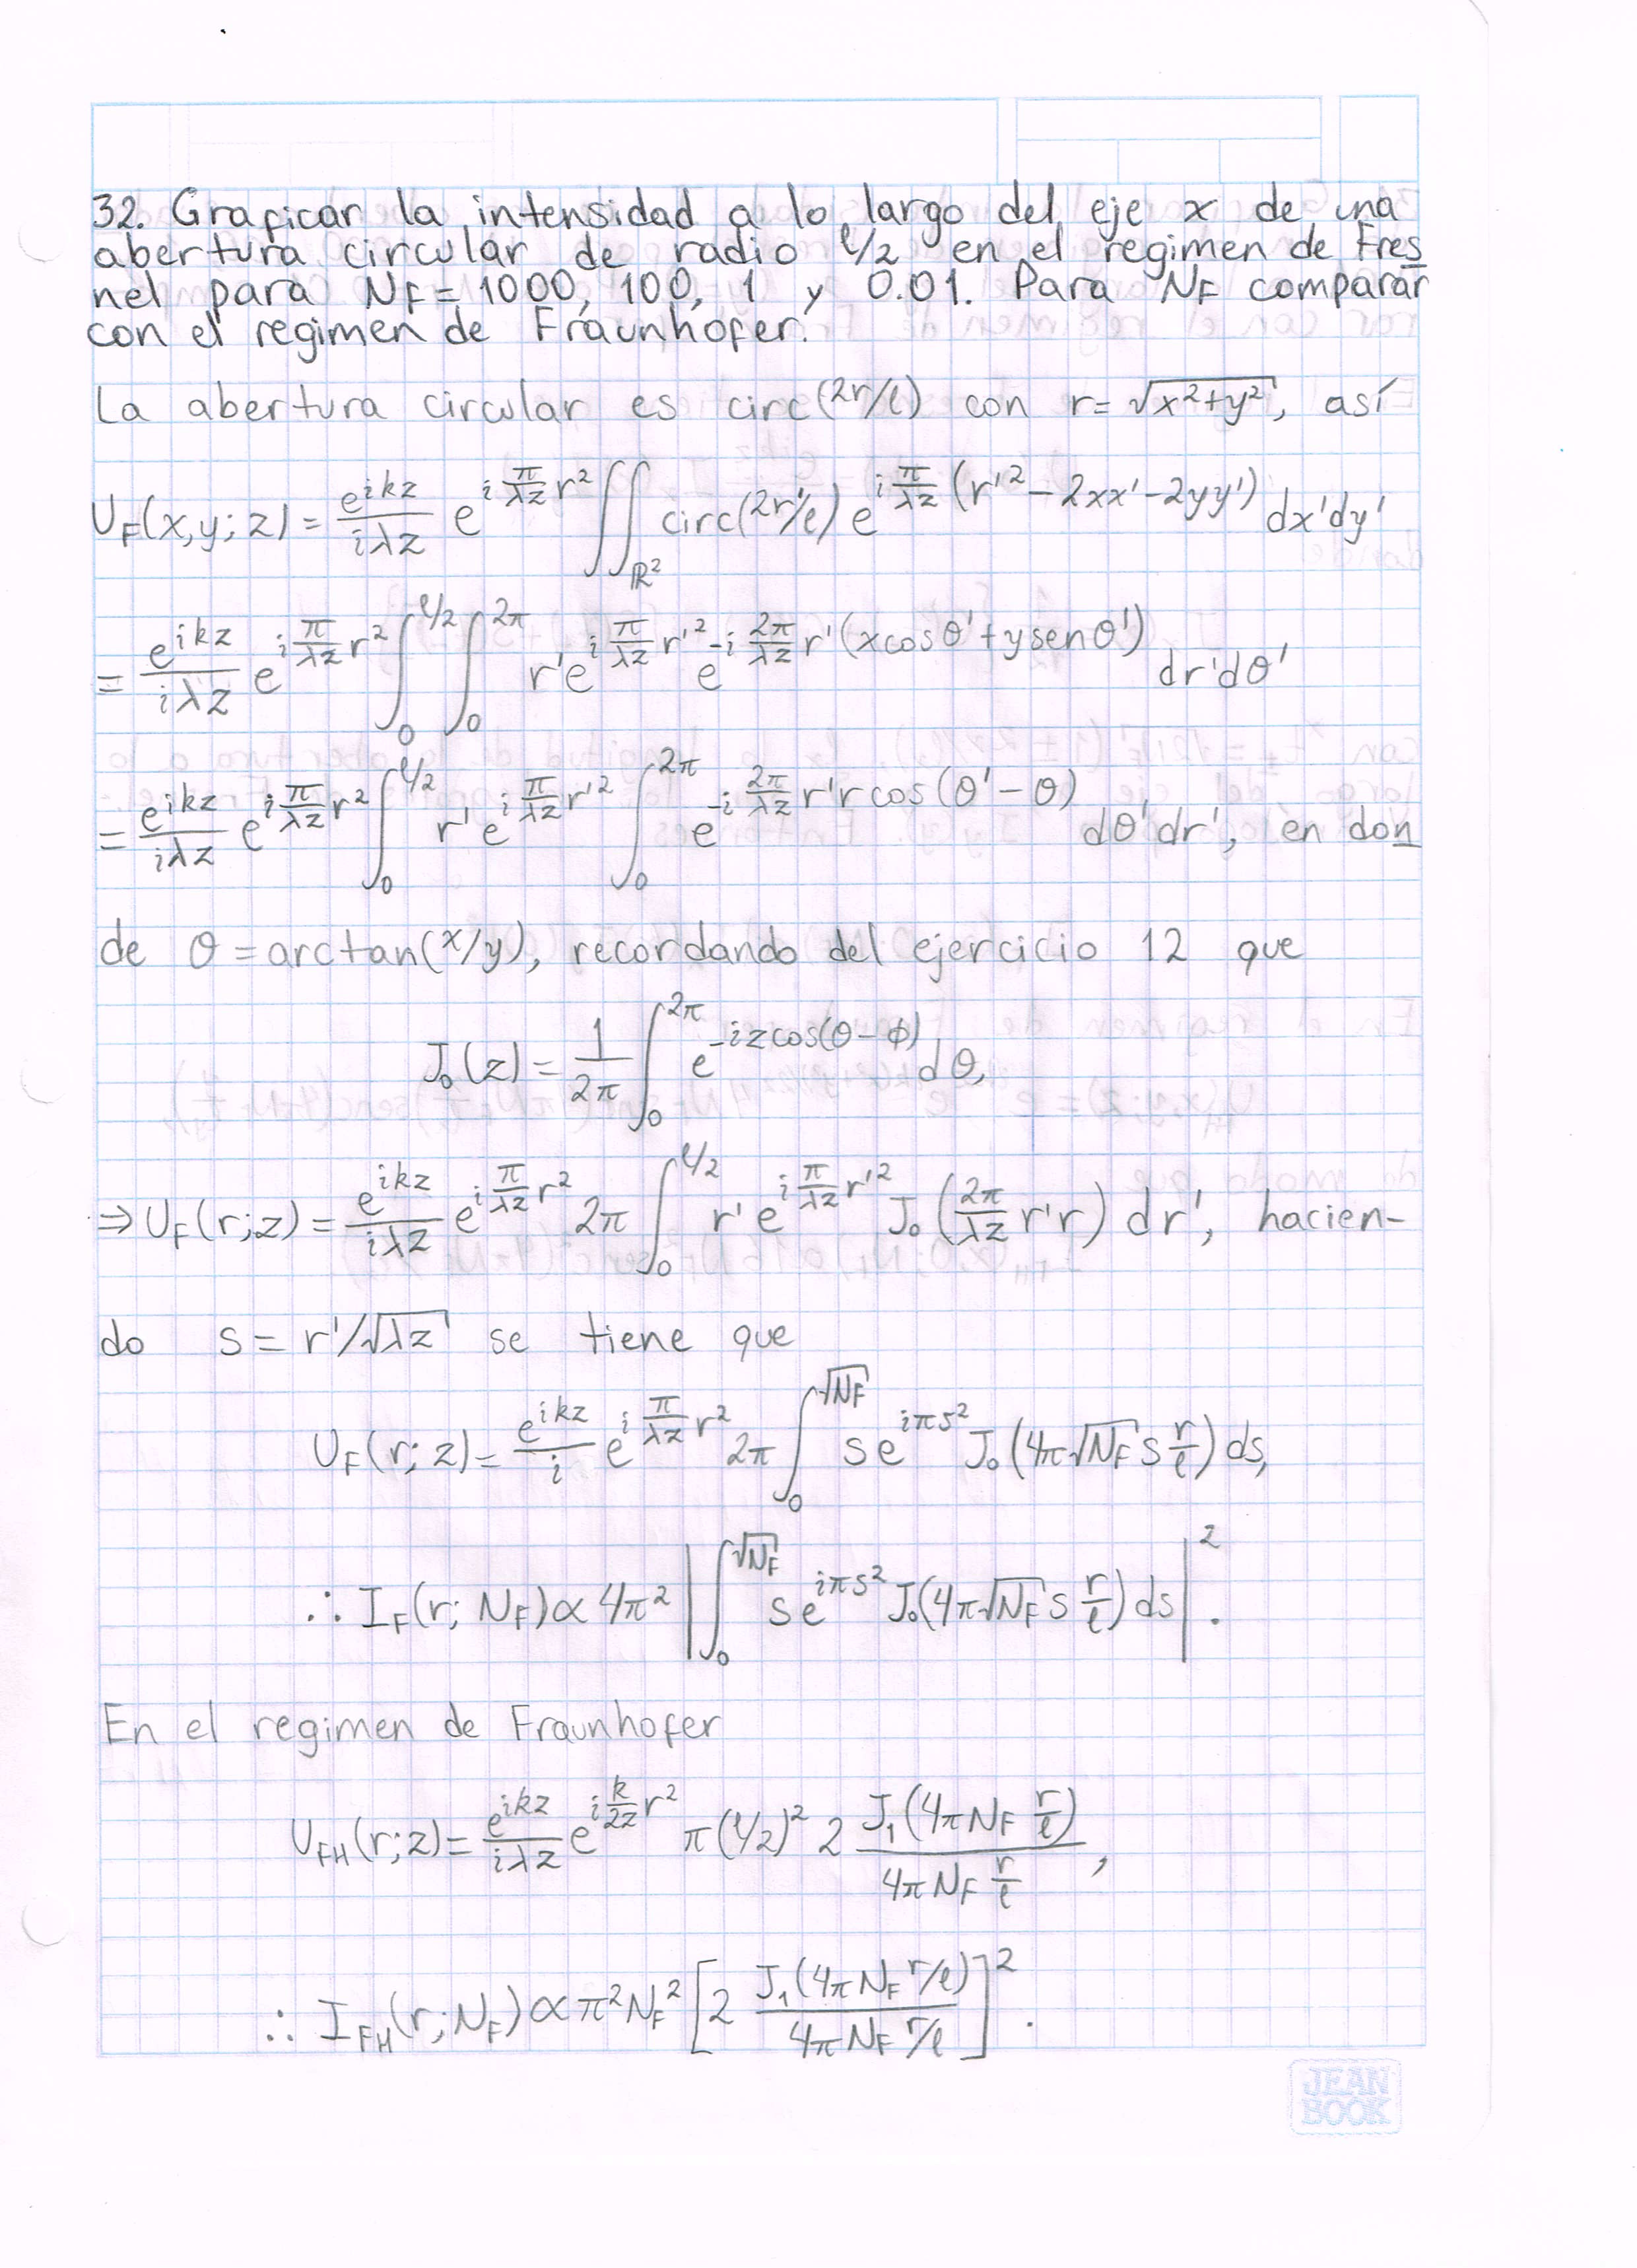 32. Graficar la intensidad a lo largo del eje x de una
abertura circular de radio ℓ/2 en el regimen de Fres
nel para N_F = 1000, 100, 1 y 0.01. Para N_F comparar
con el regimen de Fraunhofer.
La abertura circular es circ(2r/ℓ) con r = √(x²+y²), así
U_F(x,y;z) = e^{ikz}/(iλz) e^{i π/(λz) r²} ∬_{ℝ²} circ(2r'/ℓ) e^{i π/(λz) (r'² - 2xx' - 2yy')} dx'dy'
= e^{ikz}/(iλz) e^{i π/(λz) r²} ∫_0^{ℓ/2} ∫_0^{2π} r' e^{i π/(λz) r'²} e^{-i 2π/(λz) r'(x cos θ' + y sen θ')} dr'dθ'
= e^{ikz}/(iλz) e^{i π/(λz) r²} ∫_0^{ℓ/2} r' e^{i π/(λz) r'²} ∫_0^{2π} e^{-i 2π/(λz) r'r cos(θ' - θ)} dθ'dr', en don
de θ = arctan(x/y), recordando del ejercicio 12 que
J₀(z) = 1/(2π) ∫_0^{2π} e^{-iz cos(θ - ϕ)} dθ,
⇒ U_F(r;z) = e^{ikz}/(iλz) e^{i π/(λz) r²} 2π ∫_0^{ℓ/2} r' e^{i π/(λz) r'²} J₀(2π/(λz) r'r) dr', hacien-
do s = r'/√(λz) se tiene que
U_F(r;z) = e^{ikz}/i e^{i π/(λz) r²} 2π ∫_0^{√N_F} s e^{iπs²} J₀(4π√N_F s r/ℓ) ds,
∴ I_F(r; N_F) ∝ 4π² |∫_0^{√N_F} s e^{iπs²} J₀(4π√N_F s r/ℓ) ds|².
En el regimen de Fraunhofer
U_FH(r;z) = e^{ikz}/(iλz) e^{i k/(2z) r²} π(ℓ/2)² 2 J₁(4πN_F r/ℓ)/(4πN_F r/ℓ),
∴ I_FH(r;N_F) ∝ π²N_F² [2 J₁(4πN_F r/ℓ)/(4πN_F r/ℓ)]².
JEAN
BOOK